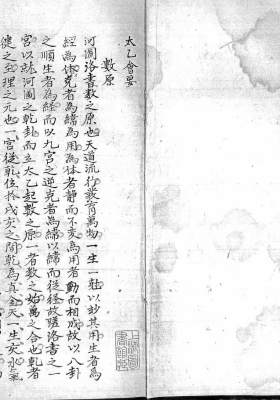 太乙會要
數原
河圖洛書數之原也天道流行發育萬物一生一尅以妙其用生者為
經為體克者為緯為用為體者靜而不變為用者動而相成故以八卦
之順生者為經而以九宮之逆克者為緯以緯而從經故隨洛書之一
宮以就河圖之乾卦而立太乙起數之原一者數之始萬之合也乾者
健之至理之元也一宮從乾位於戌亥之間乾為真金天一生亥水氣